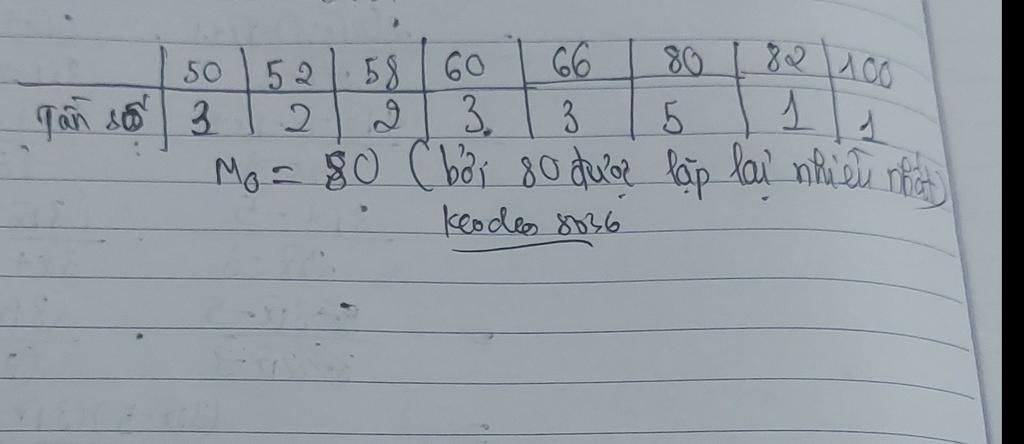 50 52 58 60 66 80 82 100
Tần số 3 2 2 3 3 5 1 1
M₀ = 80 (bởi 80 được lặp lại nhiều nhất)
keodeo 8036